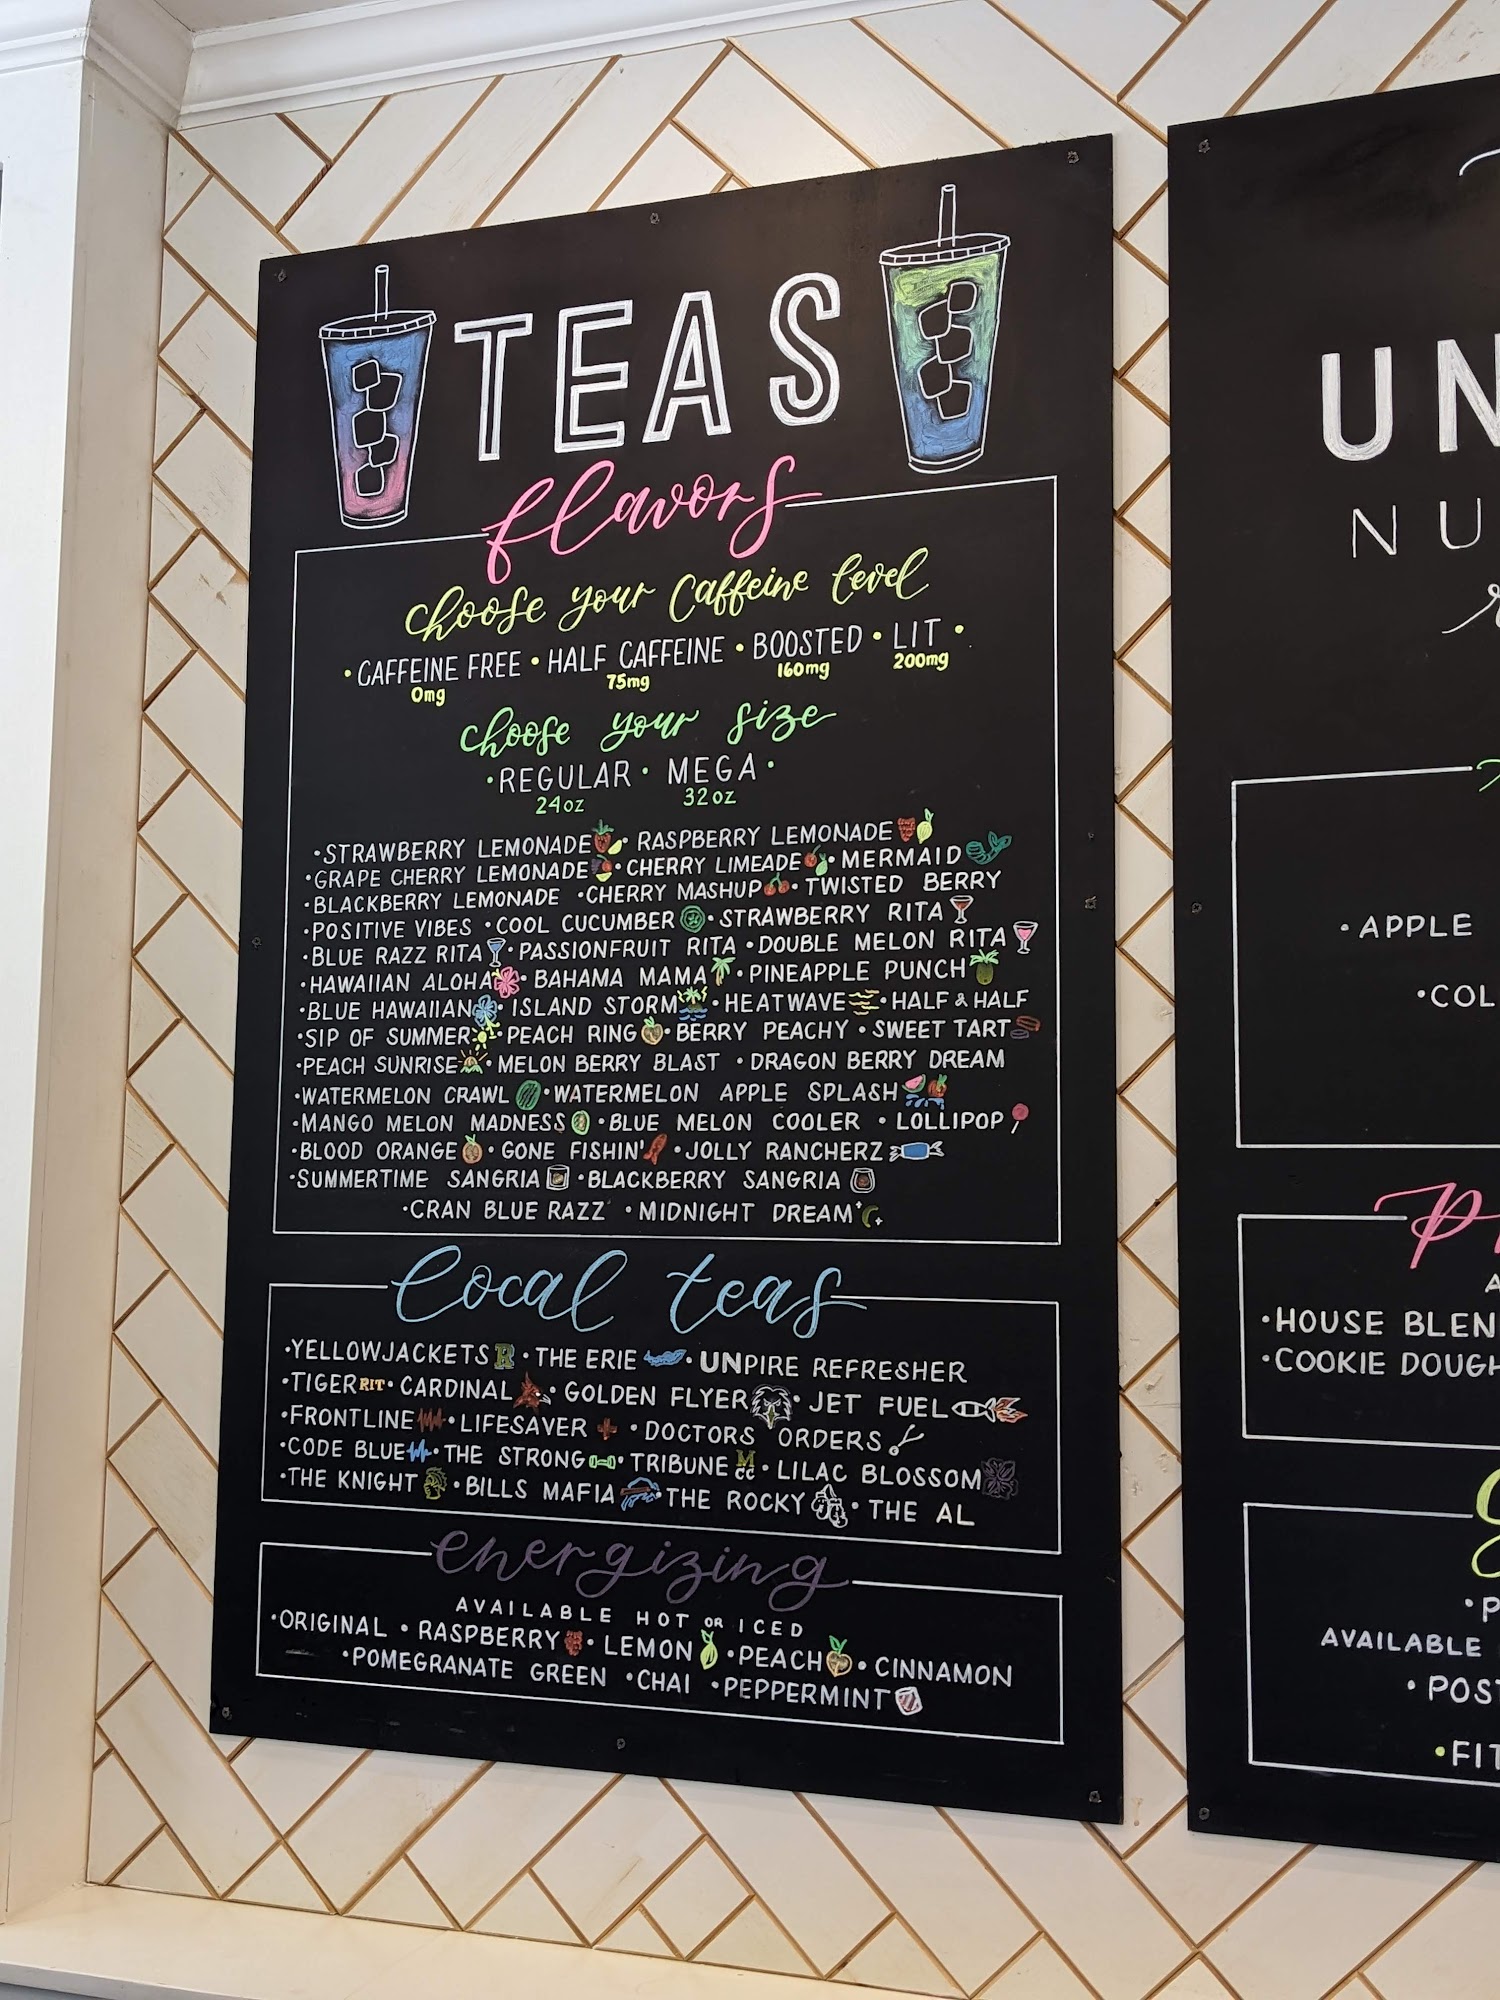 TEAS
flavors
choose your caffeine level
• CAFFEINE FREE • HALF CAFFEINE • BOOSTED • LIT •
0mg 75mg 160mg 200mg
choose your size
• REGULAR • MEGA •
24oz 32oz
• STRAWBERRY LEMONADE • RASPBERRY LEMONADE
• GRAPE CHERRY LEMONADE • CHERRY LIMEADE • MERMAID
• BLACKBERRY LEMONADE • CHERRY MASHUP • TWISTED BERRY
• POSITIVE VIBES • COOL CUCUMBER • STRAWBERRY RITA
• BLUE RAZZ RITA • PASSIONFRUIT RITA • DOUBLE MELON RITA
• HAWAIIAN ALOHA • BAHAMA MAMA • PINEAPPLE PUNCH
• BLUE HAWAIIAN • ISLAND STORM • HEATWAVE • HALF & HALF
• SIP OF SUMMER • PEACH RING • BERRY PEACHY • SWEET TART
• PEACH SUNRISE • MELON BERRY BLAST • DRAGON BERRY DREAM
• WATERMELON CRAWL • WATERMELON APPLE SPLASH
• MANGO MELON MADNESS • BLUE MELON COOLER • LOLLIPOP
• BLOOD ORANGE • GONE FISHIN' • JOLLY RANCHERZ
• SUMMERTIME SANGRIA • BLACKBERRY SANGRIA
• CRAN BLUE RAZZ • MIDNIGHT DREAM
local teas
• YELLOWJACKETS R • THE ERIE • UNPIRE REFRESHER
• TIGER RIT • CARDINAL • GOLDEN FLYER • JET FUEL
• FRONTLINE • LIFESAVER • DOCTORS ORDERS
• CODE BLUE • THE STRONG • TRIBUNE MCC • LILAC BLOSSOM
• THE KNIGHT • BILLS MAFIA • THE ROCKY • THE AL
energizing
AVAILABLE HOT OR ICED
• ORIGINAL • RASPBERRY • LEMON • PEACH • CINNAMON
• POMEGRANATE GREEN • CHAI • PEPPERMINT
UN
NU
• APPLE
• COL
P
A
• HOUSE BLEN
• COOKIE DOUGH
• P
AVAILABLE
• POST
• FIT